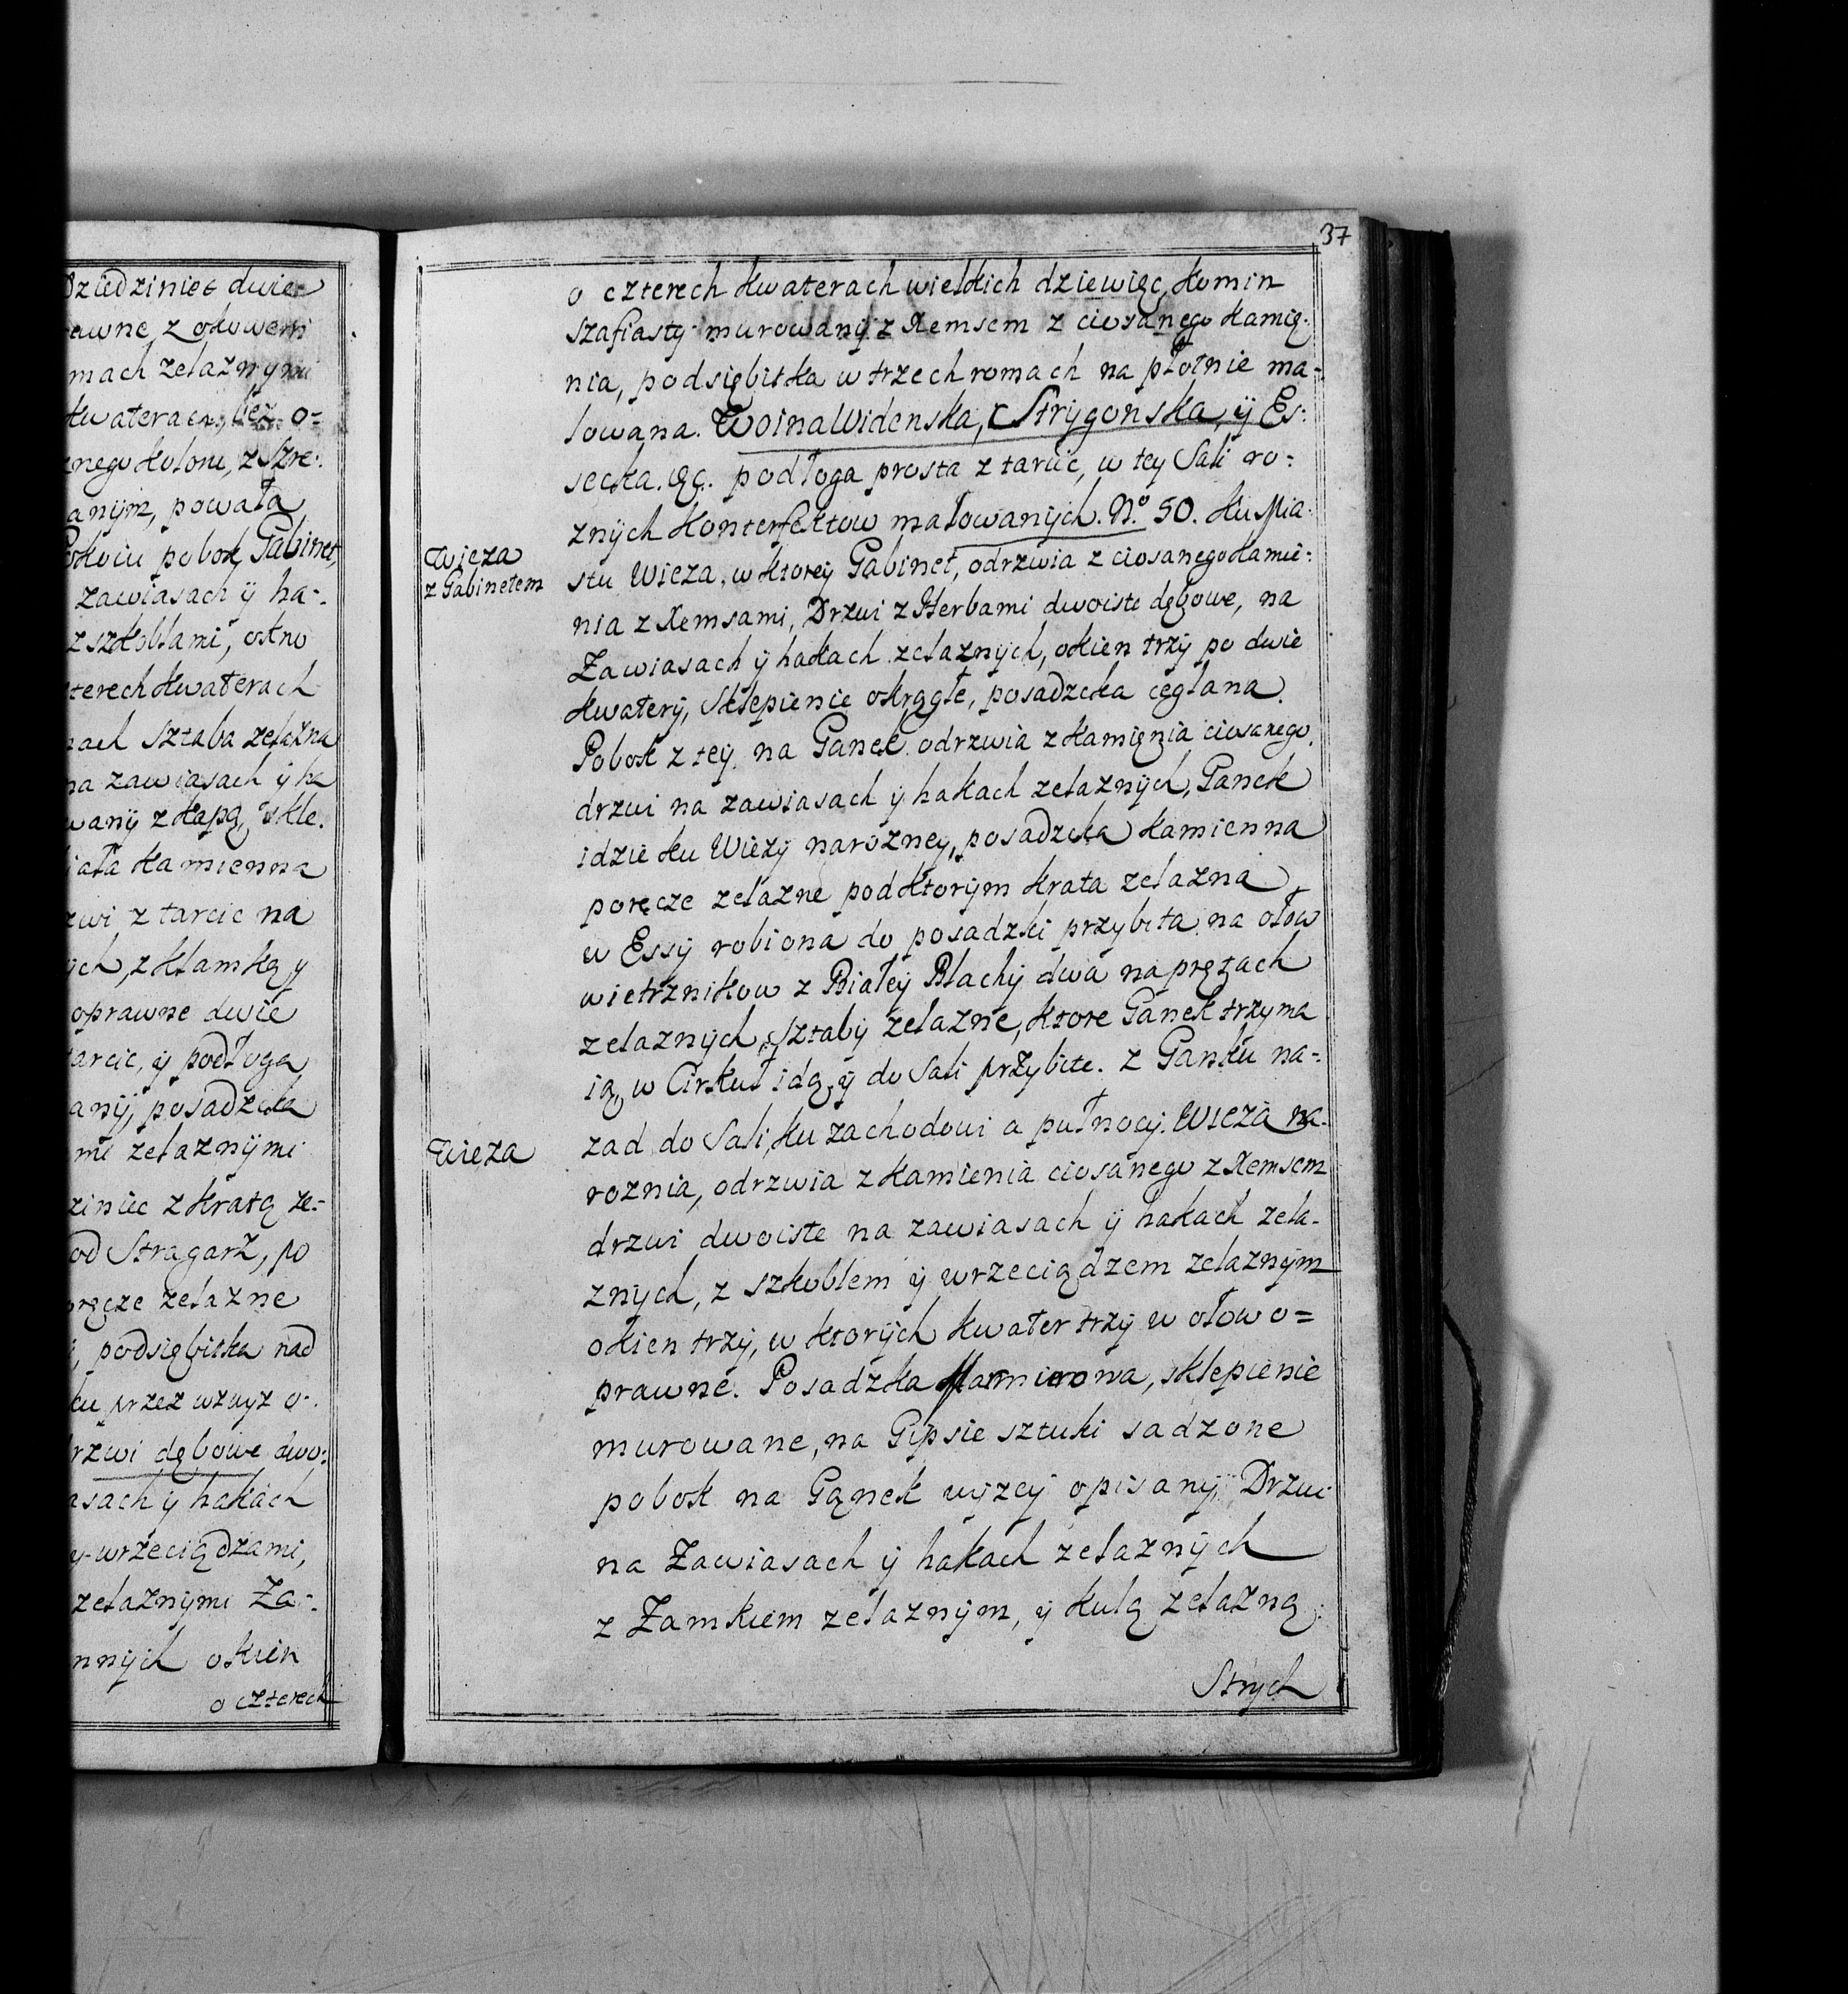 Dziedziniec dwier
rawne, z okowem
mach zelaznymi
kwaterach, bez o=
znego koloru, z Szre:
anym, powała
Pokoiu pobok Gabinet,
zawiasach ÿ ha-.
z szkoblami, okno
czterech kwaterach
hach sztaba zelazna
na zawiasach ÿ ha
wanÿ z kapą, skle.
iała kamienna
rzwi z tarcic na
ÿch, z klamką y
oprawne dwie
tarcic, ÿ podłoga
anÿ, posadzka
mi zelaznÿmi
ziniec z kratą ze-:
od Stragarz, po
oręcze zelazne
i, podsiębitka nad
ku przez wzwyz o-.
rzwi dębowe dwo:
asach ÿ hakach
y wrzeciądzami,
zelaznÿmi Za-:
nnÿch okien
o czterech
37
o czterech kwaterach wielkich dziewięc, komin
szafiasty murowanÿ z Xemsem z ciosanego kamię.
nia, podsiębitka w trzech romach na płotnie ma-
lowana. Woina Widenska, Strÿgonska, ÿ Es:
secka. &c. podłoga prosta z tarcic, w tey Sali ro=
znÿch Konterfektow malowanÿch. No. 50. ku Mia-
Wieza
z Gabinetem
stu Wieza, w ktoreÿ Gabinet, odrzwia z ciosanego kamie:
nia z Xemsami, Drzwi z Herbami dwoiste dębowe, na
Zawiasach ÿ hakach zelaznÿch, okien trzÿ po dwie
kwaterÿ, Sklepienie okrągłe, posadzka ceglana.
Pobok z teÿ na Ganek odrzwia z kamięnia ciosanego,
drzwi na zawiasach ÿ hakach zelaznÿch, Ganek
idzie ku Wiezÿ narozney, posadzka kamienna
poręcze zelazne pod ktorÿm krata zelazna
w Essÿ robiona do posadzki przybita na ołow
wietrznikow z Białeÿ Blachÿ dwa na prętach
zelaznÿch, sztabÿ zelazne, ktore Ganek trzyma
ią, w Cirkuł idą ÿ do Sali przybite. z Ganku na-:
Wieza
zad do Sali, ku zachodowi a pułnocÿ. Wieza na-
roznia, odrzwia z kamienia ciosanego z Xemsem
drzwi dwoiste na zawiasach ÿ hakach zela-
znÿch, z szkoblem ÿ wrzeciądzem zelaznÿm
okien trzÿ, w ktorÿch kwater trzÿ w ołow o=
prawne. Posadzka Marmurowa, sklepienie
murowane, na Gipsie sztuki sadzone
pobok na Gąnek wÿzeÿ opisanÿ, Drzwi
na Zawiasach ÿ hakach zelaznÿch
z Zamkiem zelaznÿm, ÿ kulą zelazną:
Strÿch